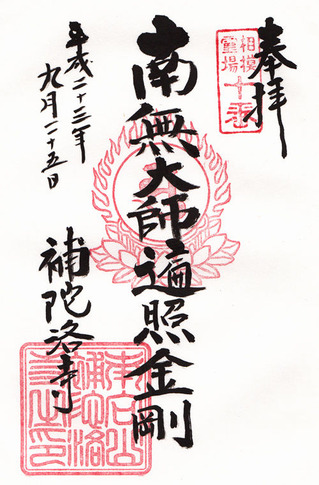 奉拝
相模
霊場
十番
南無大師遍照金剛
平成二十三年
九月二十五日
補陀洛寺